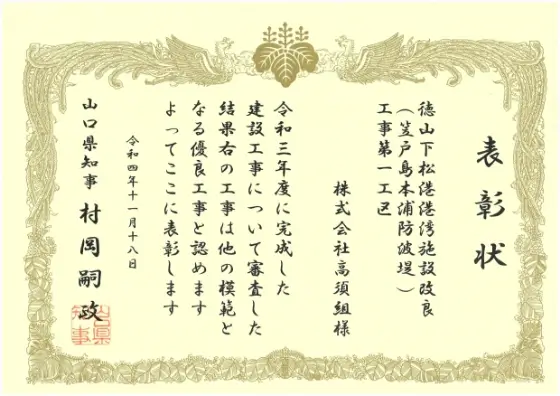 表彰状
徳山下松港港湾施設改良
（笠戸島本浦防波堤）
工事第一工区
株式会社高須組様
令和三年度に完成した
建設工事について審査した
結果右の工事は他の模範と
なる優良工事と認めます
よってここに表彰します
令和四年十一月十八日
山口県知事 村岡嗣政
山口県知事